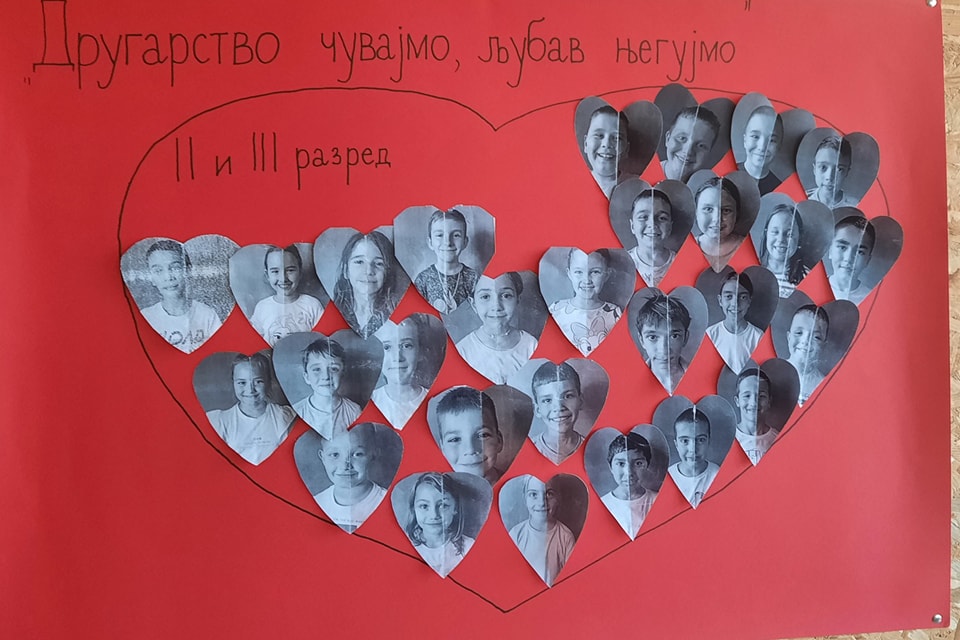 „Другарство чувајмо, љубав његујмо"
II и III разред